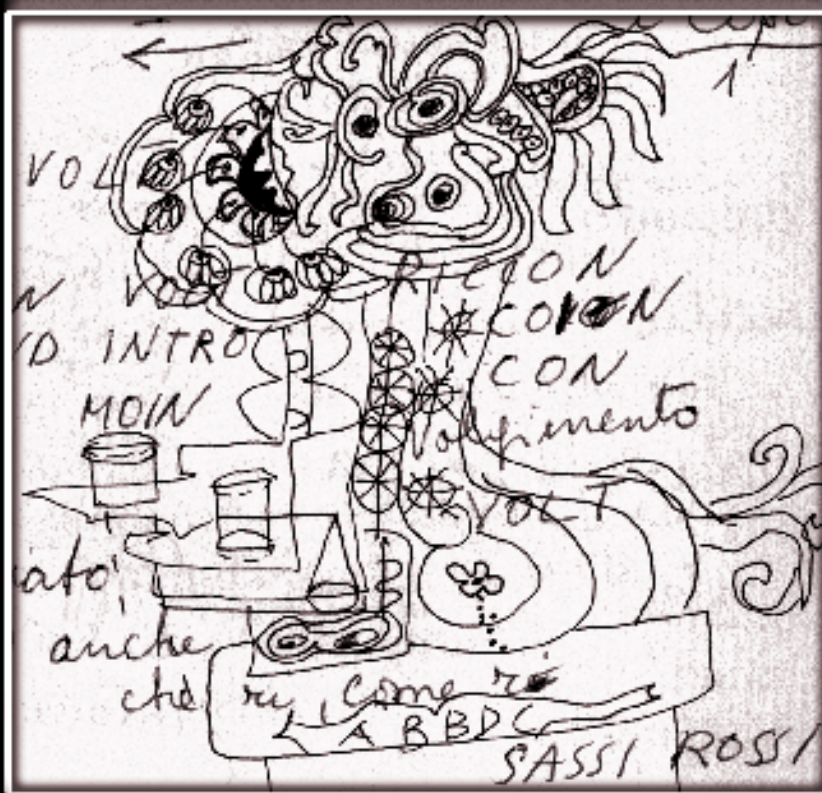 1
VOL
RICION
N VOL
COION
D INTRO
CON
MOIN
Volgimento
VOLT
ato,
anche
che ri, come ri
A B B D C
SASSI ROSSI